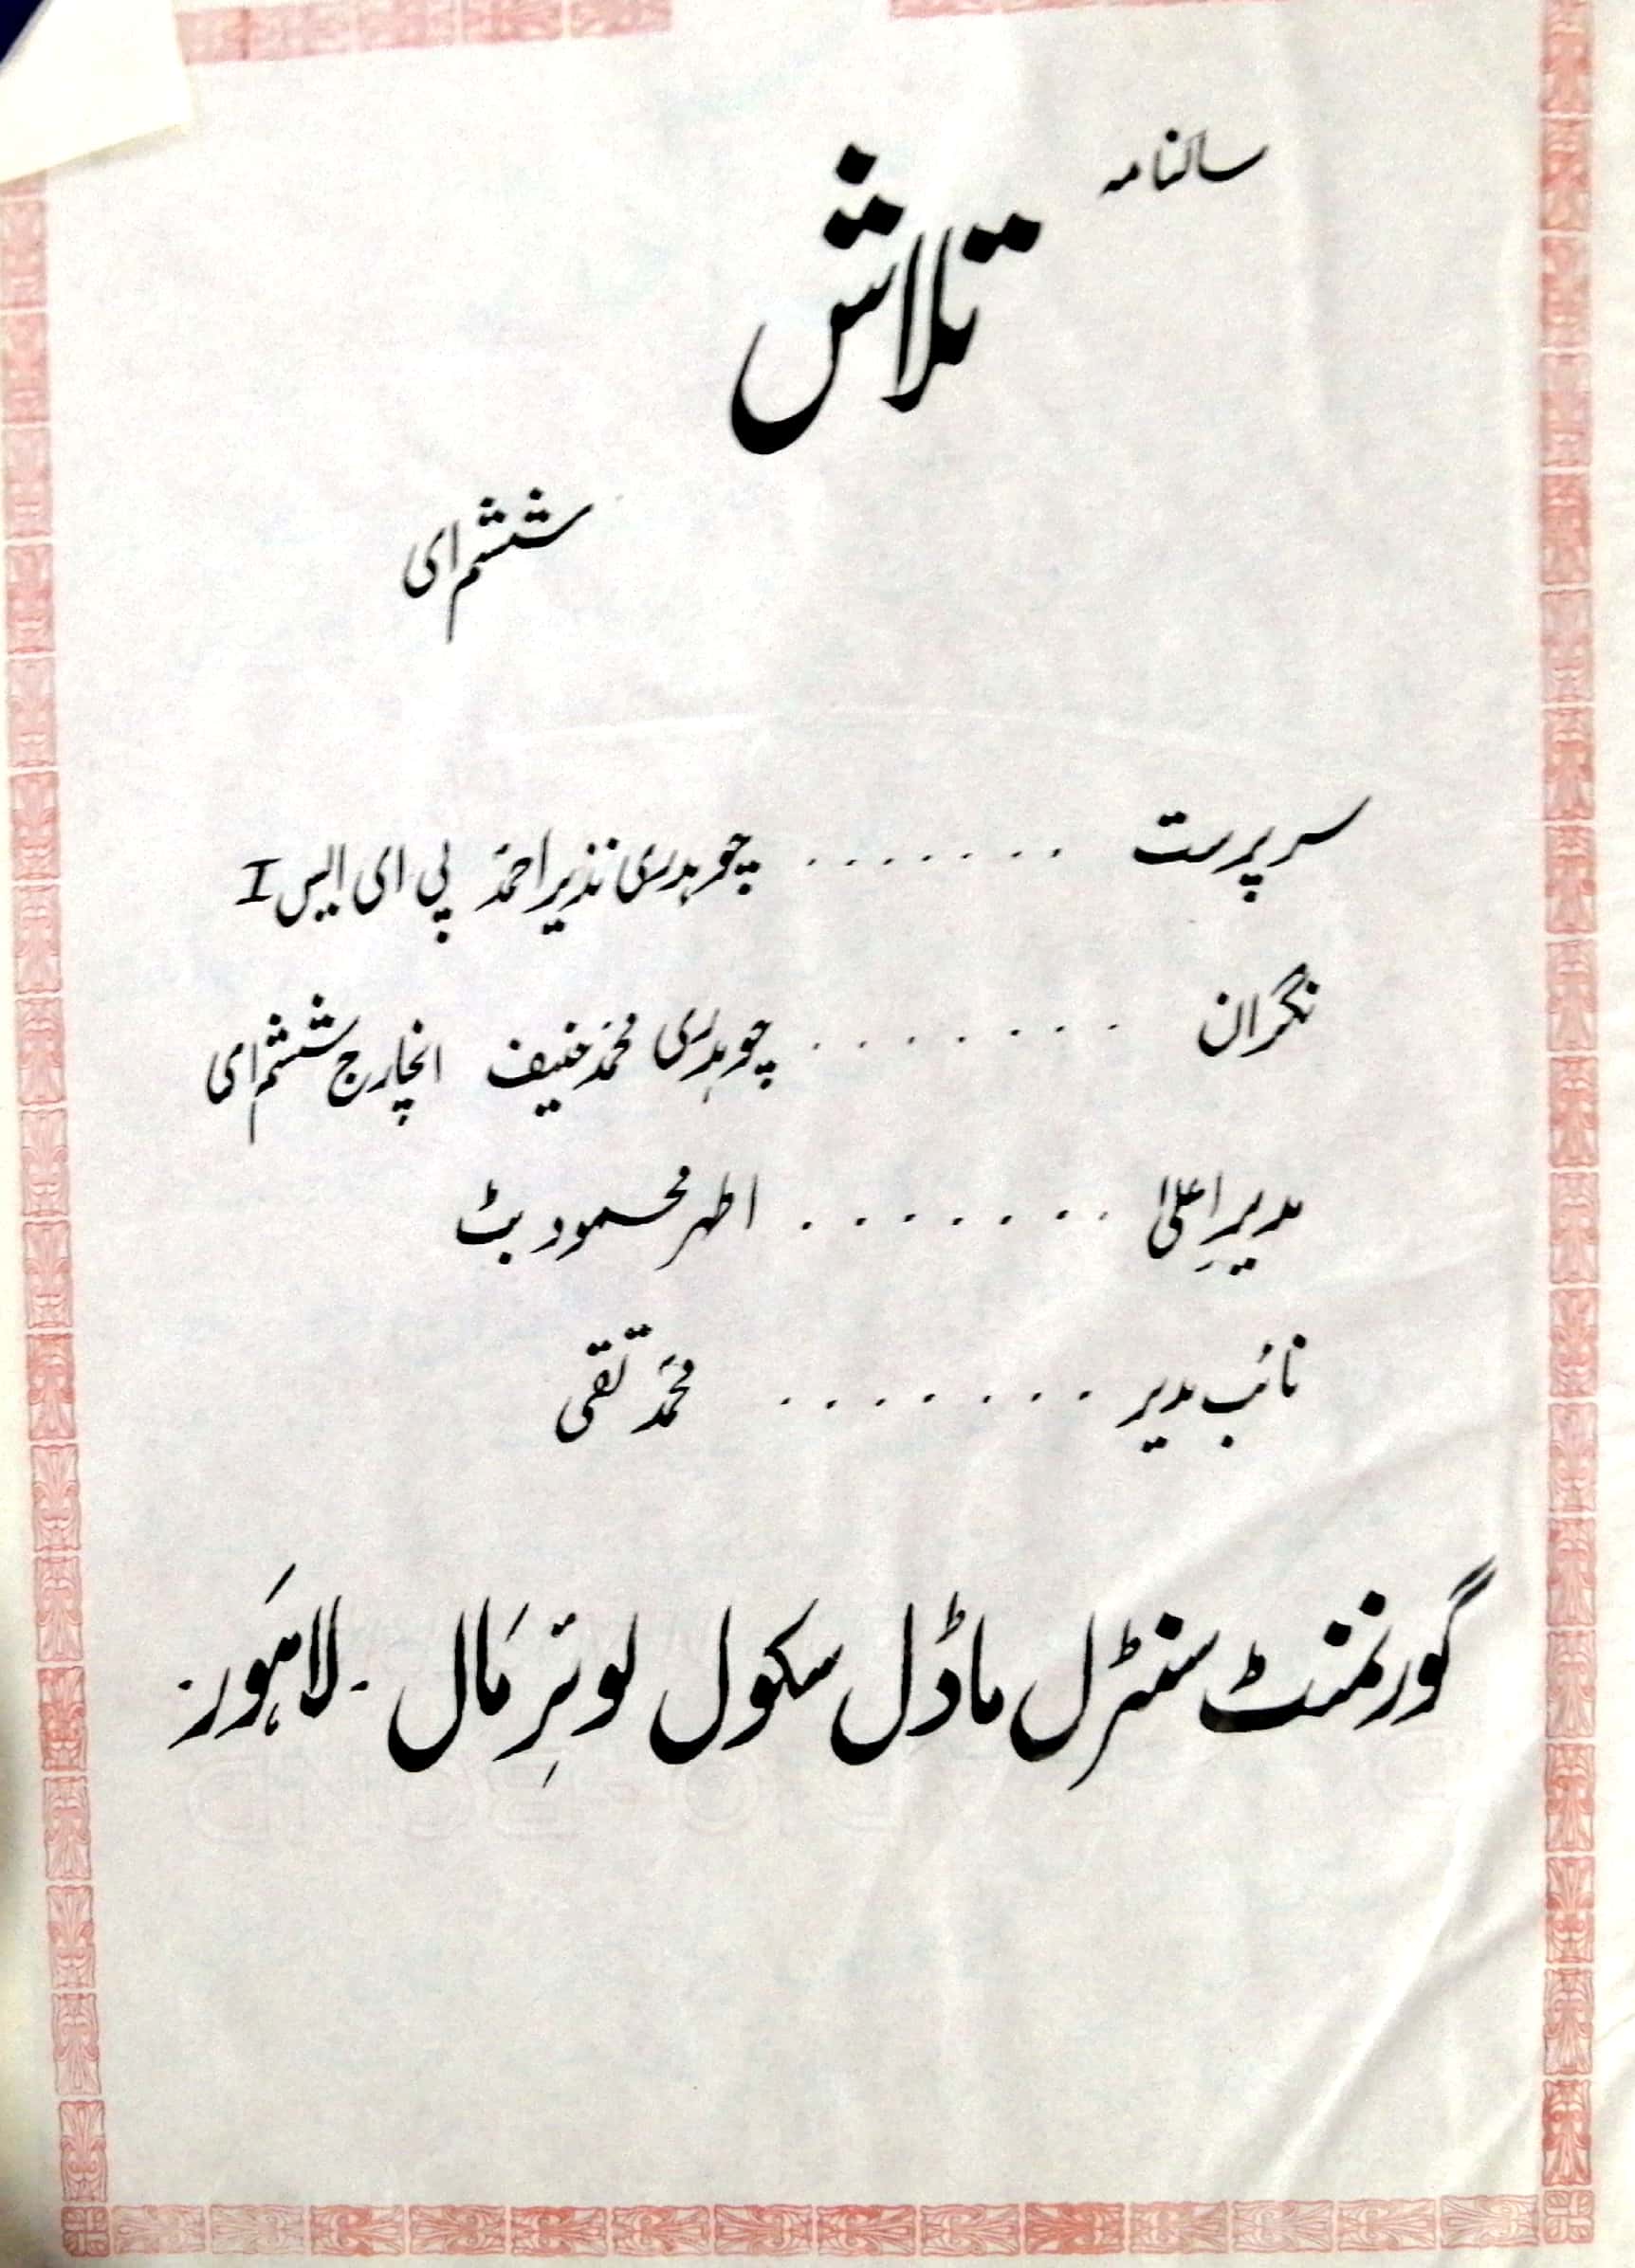 سالنامہ
تلاش
ششم ای
سرپرست ........ چوہدری نذیر احمدؐ پی ای ایس I
نگران ........ چوہدری محمدؐ حنیف انچارج ششم ای
مدیرِ اعلیٰ ........ اطہر محمود بٹ
نائب مدیر ........ محمدؐ تقی
گورنمنٹ سنٹرل ماڈل سکول لوئرِ مَال ۔ لاہَور ۔